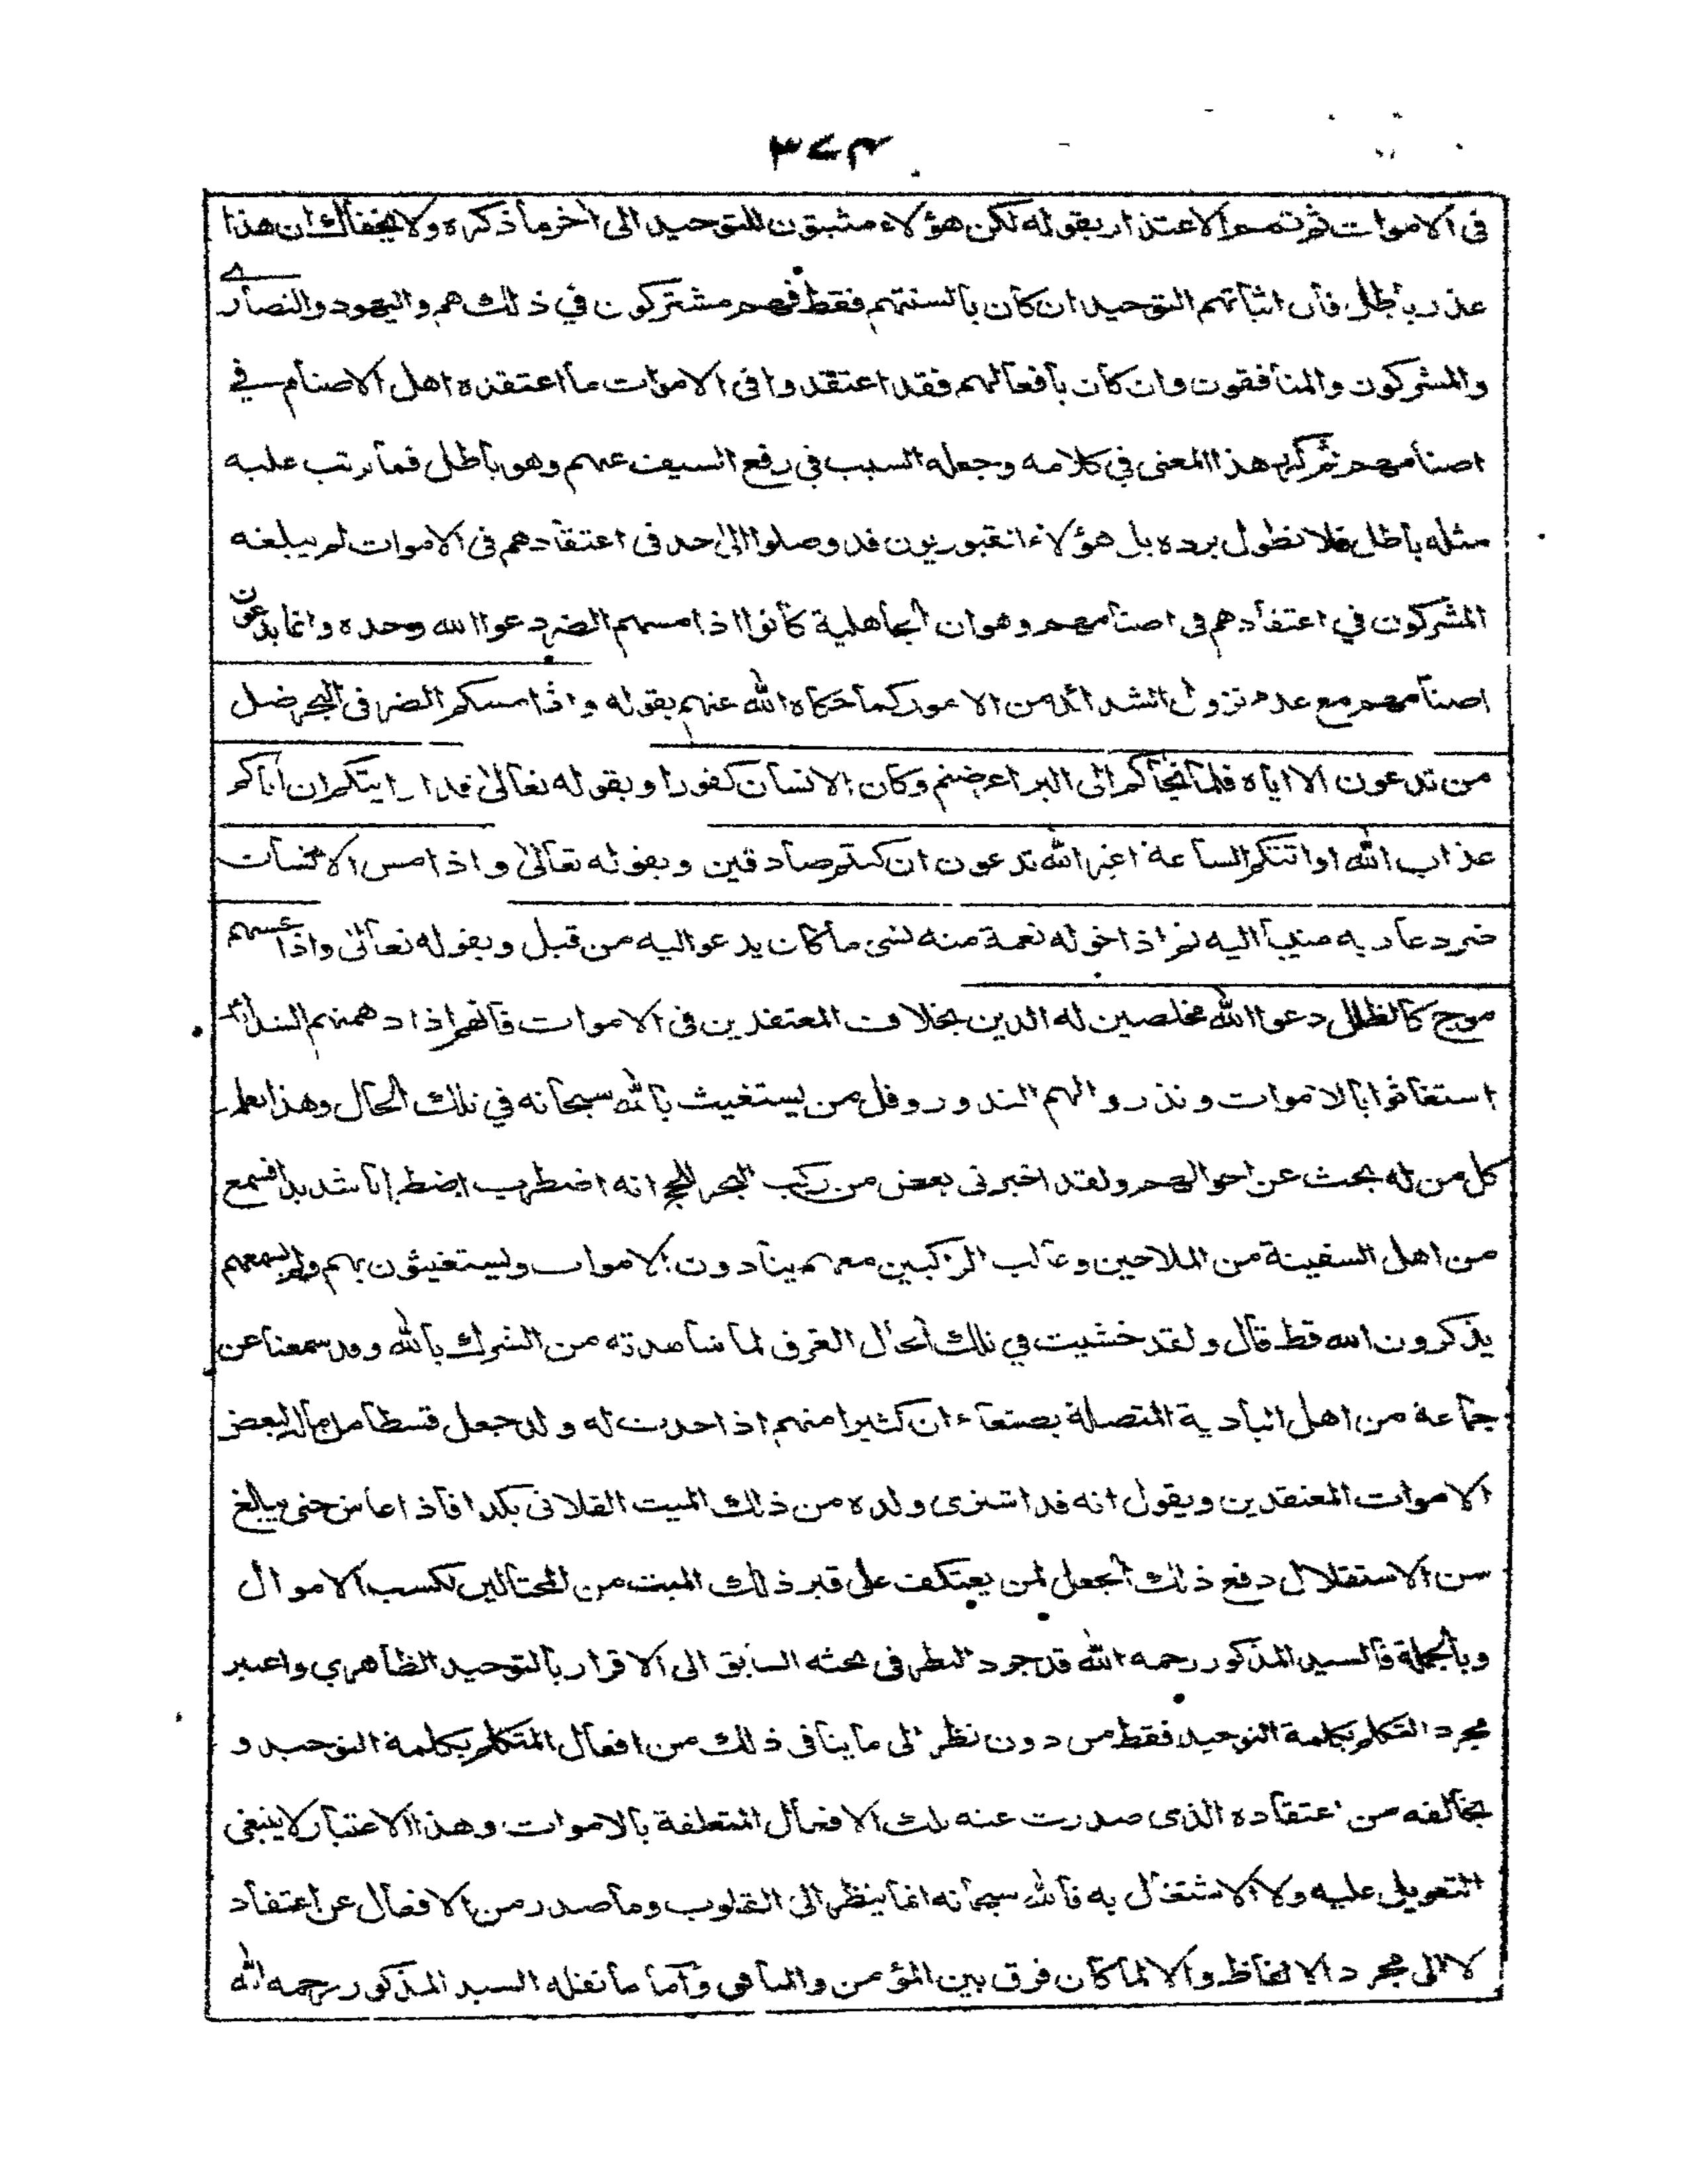 ٣٧٣
فى الاموات ثم تمم الاعتذار بقوله لكن هؤلاء مثبتون للتوحيد الى اخر ما ذكره ولا يخفاك ان هذا
عذر باطل فان اثباتهم التوحيد ان كان بالسنتهم فقط فهم مشتركون في ذلك هم واليهود والنصارى
والمشركون والمنافقون وان كان بافعالهم فقد اعتقدوا فى الاموات ما اعتقده اهل الاصنام في
اصنامهم ثم كرر هذا المعنى في كلامه وجعله السبب في رفع السيف عنهم وهو باطل فما ترتب عليه
مثله باطل فلا نطول برده بل هؤلاء القبوريون قد وصلوا الى حد فى اعتقادهم فى الاموات لم يبلغه
المشركون في اعتقادهم فى اصنامهم وهو ان الجاهلية كانوا اذا مسهم الضر دعوا الله وحده وانما يدعون
اصنامهم مع عدم نزول الشدائد من الامور كما حكاه الله عنهم بقوله واذا مسكم الضر فى البحر ضل
من تدعون الا اياه فلما نجاكم الى البر اعرضتم وكان الانسان كفورا وبقوله تعالى قل ارايتكم ان اتاكم
عذاب الله او اتتكم الساعة اغير الله تدعون ان كنتم صادقين وبقوله تعالى واذا مس الانسان
ضر دعا ربه منيبا اليه ثم اذا خوله نعمة منه نسى ما كان يدعو اليه من قبل وبقوله تعالى واذا غشيهم
موج كالظلل دعوا الله مخلصين له الدين بخلاف المعتقدين فى الاموات فانهم اذا دهمتهم الشدائد
استغاثوا بالاموات ونذروا لهم النذور وقل من يستغيث بالله سبحانه في تلك الحال وهذا يعلمه
كل من له بحث عن احوالهم ولقد اخبرنى بعض من ركب البحر للحج انه اضطرب اضطرابا شديدا فسمع
من اهل السفينة من الملاحين وغالب الراكبين معهم ينادون الاموات ويستغيثون بهم ولم يسمعهم
يذكرون الله قط قال ولقد خشيت في تلك الحال الغرق لما شاهدته من الشرك بالله وقد سمعنا عن
جماعة من اهل البادية المتصلة بصنعاء ان كثيرا منهم اذا حدث له ولد جعل قسطا من ماله لبعض
الاموات المعتقدين ويقول انه قد اشترى ولده من ذلك الميت الفلانى بكذا فاذا عاش حتى يبلغ
سن الاستقلال دفع ذلك الجعل لمن يعتكف على قبر ذلك الميت من المحتالين لكسب الاموال
وبالجملة فالسيد المذكور رحمه الله قد جرد النظر فى بحثه السابق الى الاقرار بالتوحيد الظاهري واعتبر
مجرد التكلم بكلمة التوحيد فقط من دون نظر الى ما ينافى ذلك من افعال المتكلم بكلمة التوحيد و
يخالفه من اعتقاده الذى صدرت عنه تلك الافعال المتعلقة بالاموات وهذا الاعتبار لا ينبغي
التعويل عليه ولا الاشتغال به فالله سبحانه انما ينظر الى القلوب وما صدر من الافعال عن اعتقاد
لا الى مجرد الالفاظ والا لما كان فرق بين المؤمن والمنافق واما ما نقله السيد المذكور رحمه الله